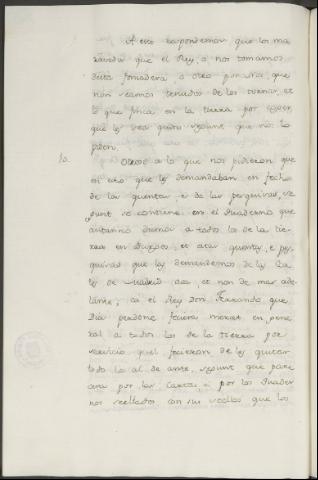 A esto respondemos, que los ma
ravedis que el Rey, o nos tomamos
desta fonsadera o otro por nos, que
non seamos tenudos de los tornar, et
lo que finca en la tierra por coger,
que les sea quito segunt que nos lo
piden.
10. Otrosi a lo que nos pidieron que
en raz que les demandaban en fecho
de las quentas, e de las pesquisas, se
gunt se contiene en el Quaderno que
a todos los de la tie
rra en Burgos, et atar quentas, e pes
quisas que les demandemos de las Ca
les de Madrid aca et non de mas ade
lante, ca el Rey Don Ferrando que
Dia perdone ficiera merced en gene
ral a todos los de la tierra por
servicio quel ficieron de les quitar
todo lo al de ante, segunt que pare
cera por las Cartas, o por los Quader
nos seellados con sus seellos que les